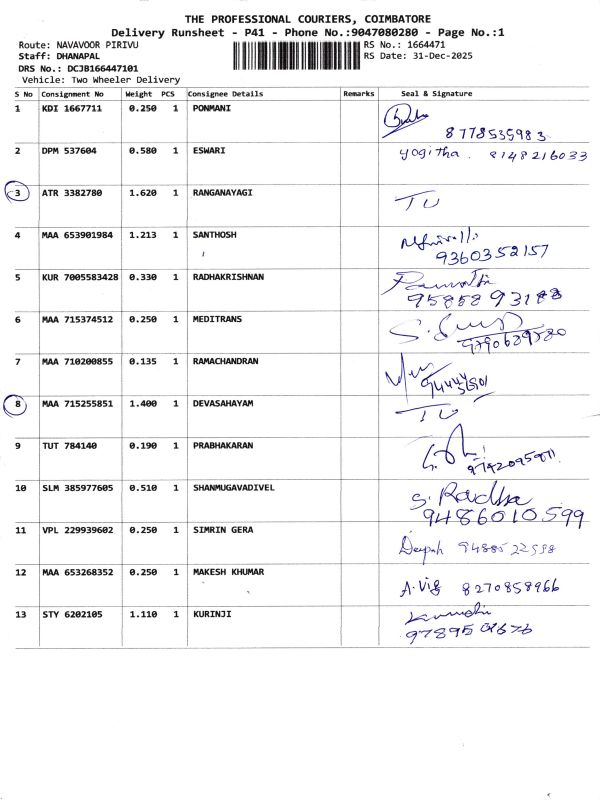 THE PROFESSIONAL COURIERS, COIMBATORE
Delivery Runsheet - P41 - Phone No.:9047080280 - Page No.:1
Route: NAVAVOOR PIRIVU RS No.: 1664471
Staff: DHANAPAL RS Date: 31-Dec-2025
DRS No.: DCJB166447101
Vehicle: Two Wheeler Delivery
S No Consignment No Weight PCS Consignee Details Remarks Seal & Signature
1 KDI 1667711 0.250 1 PONMANI
8778535983
2 DPM 537604 0.580 1 ESWARI yogitha. 8148216033
3 ATR 3382780 1.620 1 RANGANAYAGI
4 MAA 653901984 1.213 1 SANTHOSH
9360352157
5 KUR 7005583428 0.330 1 RADHAKRISHNAN
6 MAA 715374512 0.250 1 MEDITRANS
7 MAA 710200855 0.135 1 RAMACHANDRAN
8 MAA 715255851 1.400 1 DEVASAHAYAM
9 TUT 784140 0.190 1 PRABHAKARAN
10 SLM 385977605 0.510 1 SHANMUGAVADIVEL S. Radha
9486010599
11 VPL 229939602 0.250 1 SIMRIN GERA Deepah
12 MAA 653268352 0.250 1 MAKESH KHUMAR A. Vig 8270858966
13 STY 6202105 1.110 1 KURINJI